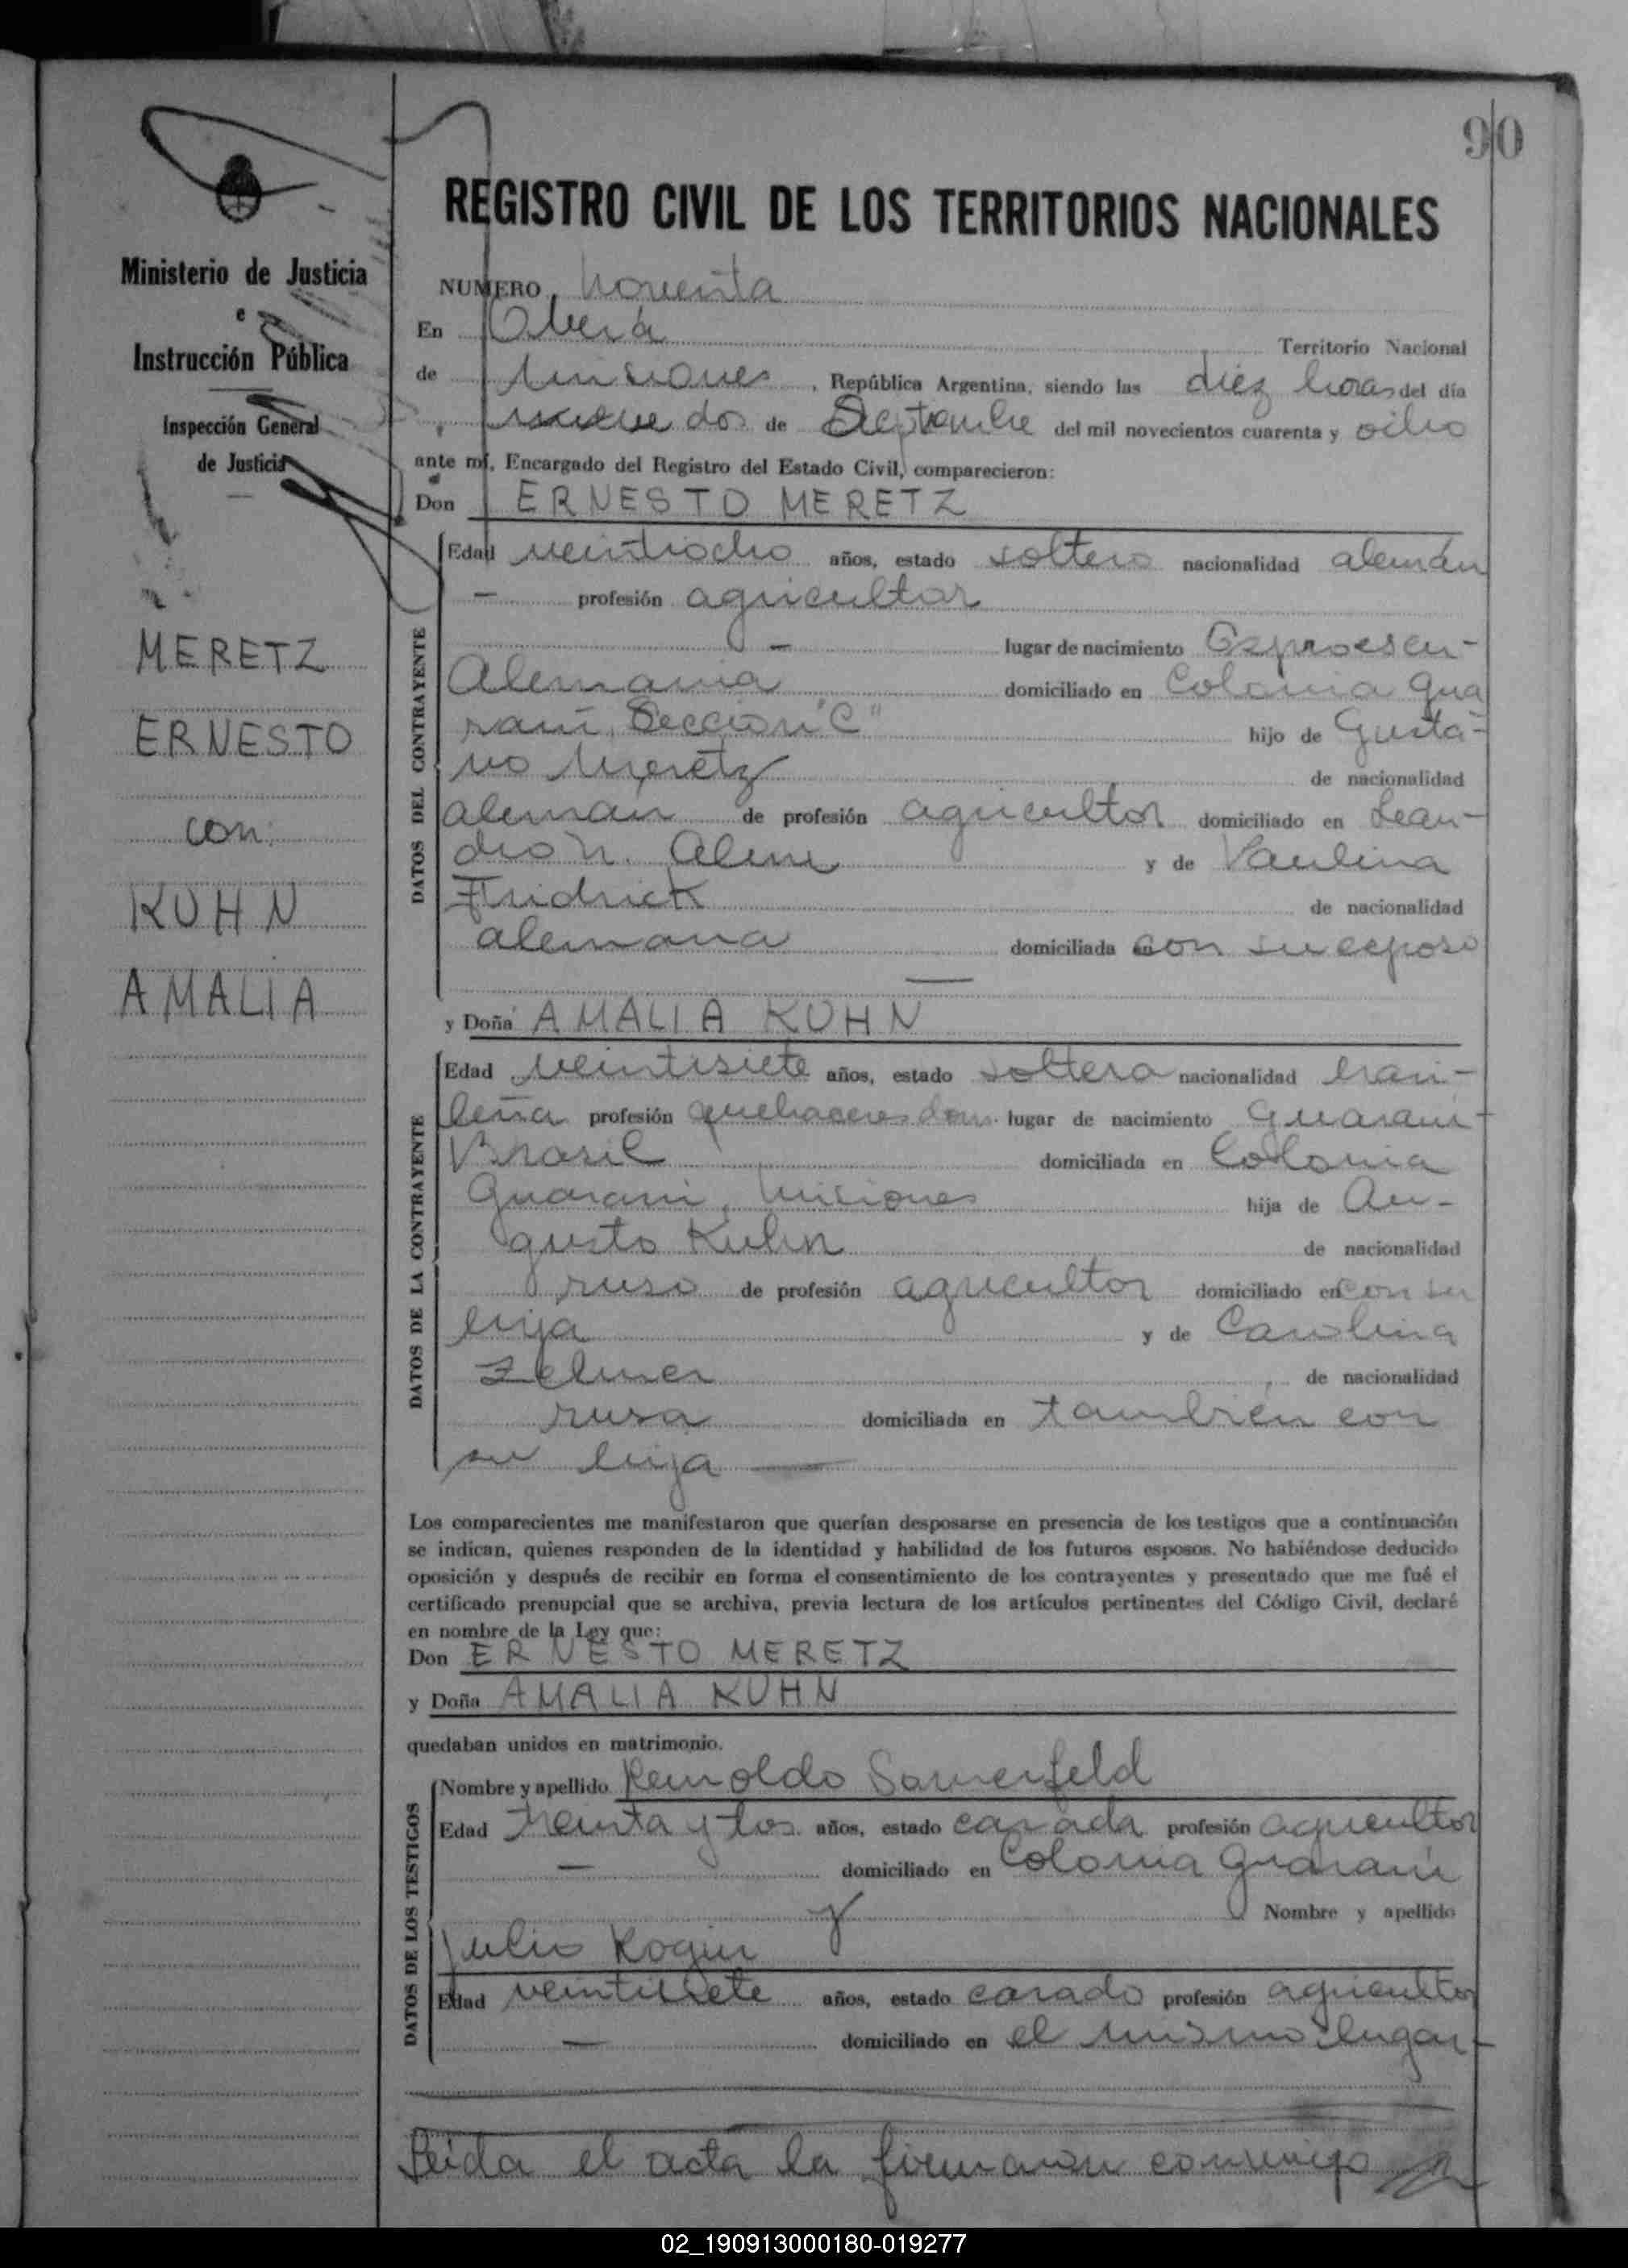 90
REGISTRO CIVIL DE LOS TERRITORIOS NACIONALES
Ministerio de Justicia
e
Instrucción Pública
Inspección General
de Justicia
MERETZ
ERNESTO
con
KUHN
AMALIA
NUMERO noventa
En Oberá Territorio Nacional
de Misiones, República Argentina, siendo las diez horas del día
dos de Septiembre del mil novecientos cuarenta y ocho
ante mí, Encargado del Registro del Estado Civil, comparecieron:
Don ERNESTO MERETZ
DATOS DEL CONTRAYENTE
Edad veintiocho años, estado soltero nacionalidad alemán
- profesión agricultor
- lugar de nacimiento
Alemania domiciliado en Colonia Gua
raní, Sección "C" hijo de Gustá-
vo Meretz de nacionalidad
alemán de profesión agricultor domiciliado en Lean-
dro N. Alem y de Paulina
Fridrick de nacionalidad
alemana domiciliada con su esposo
y Doña AMALIA KUHN
DATOS DE LA CONTRAYENTE
Edad veintisiete años, estado soltera nacionalidad brasi-
leña profesión quehaceres dom. lugar de nacimiento Guaraní-
Brasil domiciliada en Colonia
Guaraní, Misiones hija de Au-
gusto Kuhn de nacionalidad
ruso de profesión agricultor domiciliado en con su
hija y de Carolina
Zelmer de nacionalidad
rusa domiciliada en también con
su hija
Los comparecientes me manifestaron que querían desposarse en presencia de los testigos que a continuación
se indican, quienes responden de la identidad y habilidad de los futuros esposos. No habiéndose deducido
oposición y después de recibir en forma el consentimiento de los contrayentes y presentado que me fué el
certificado prenupcial que se archiva, previa lectura de los artículos pertinentes del Código Civil, declaré
en nombre de la Ley que:
Don ERNESTO MERETZ
y Doña AMALIA KUHN
quedaban unidos en matrimonio.
DATOS DE LOS TESTIGOS
Nombre y apellido Reinoldo Samerfeld
Edad treinta y años, estado casada profesión agricultor
- domiciliado en Colonia Guaraní
y Nombre y apellido
Julio
Edad veintisiete años, estado casado profesión agricultor
- domiciliado en el mismo lugar-
Leida el acta la firmaron conmigo
02_190913000180-019277